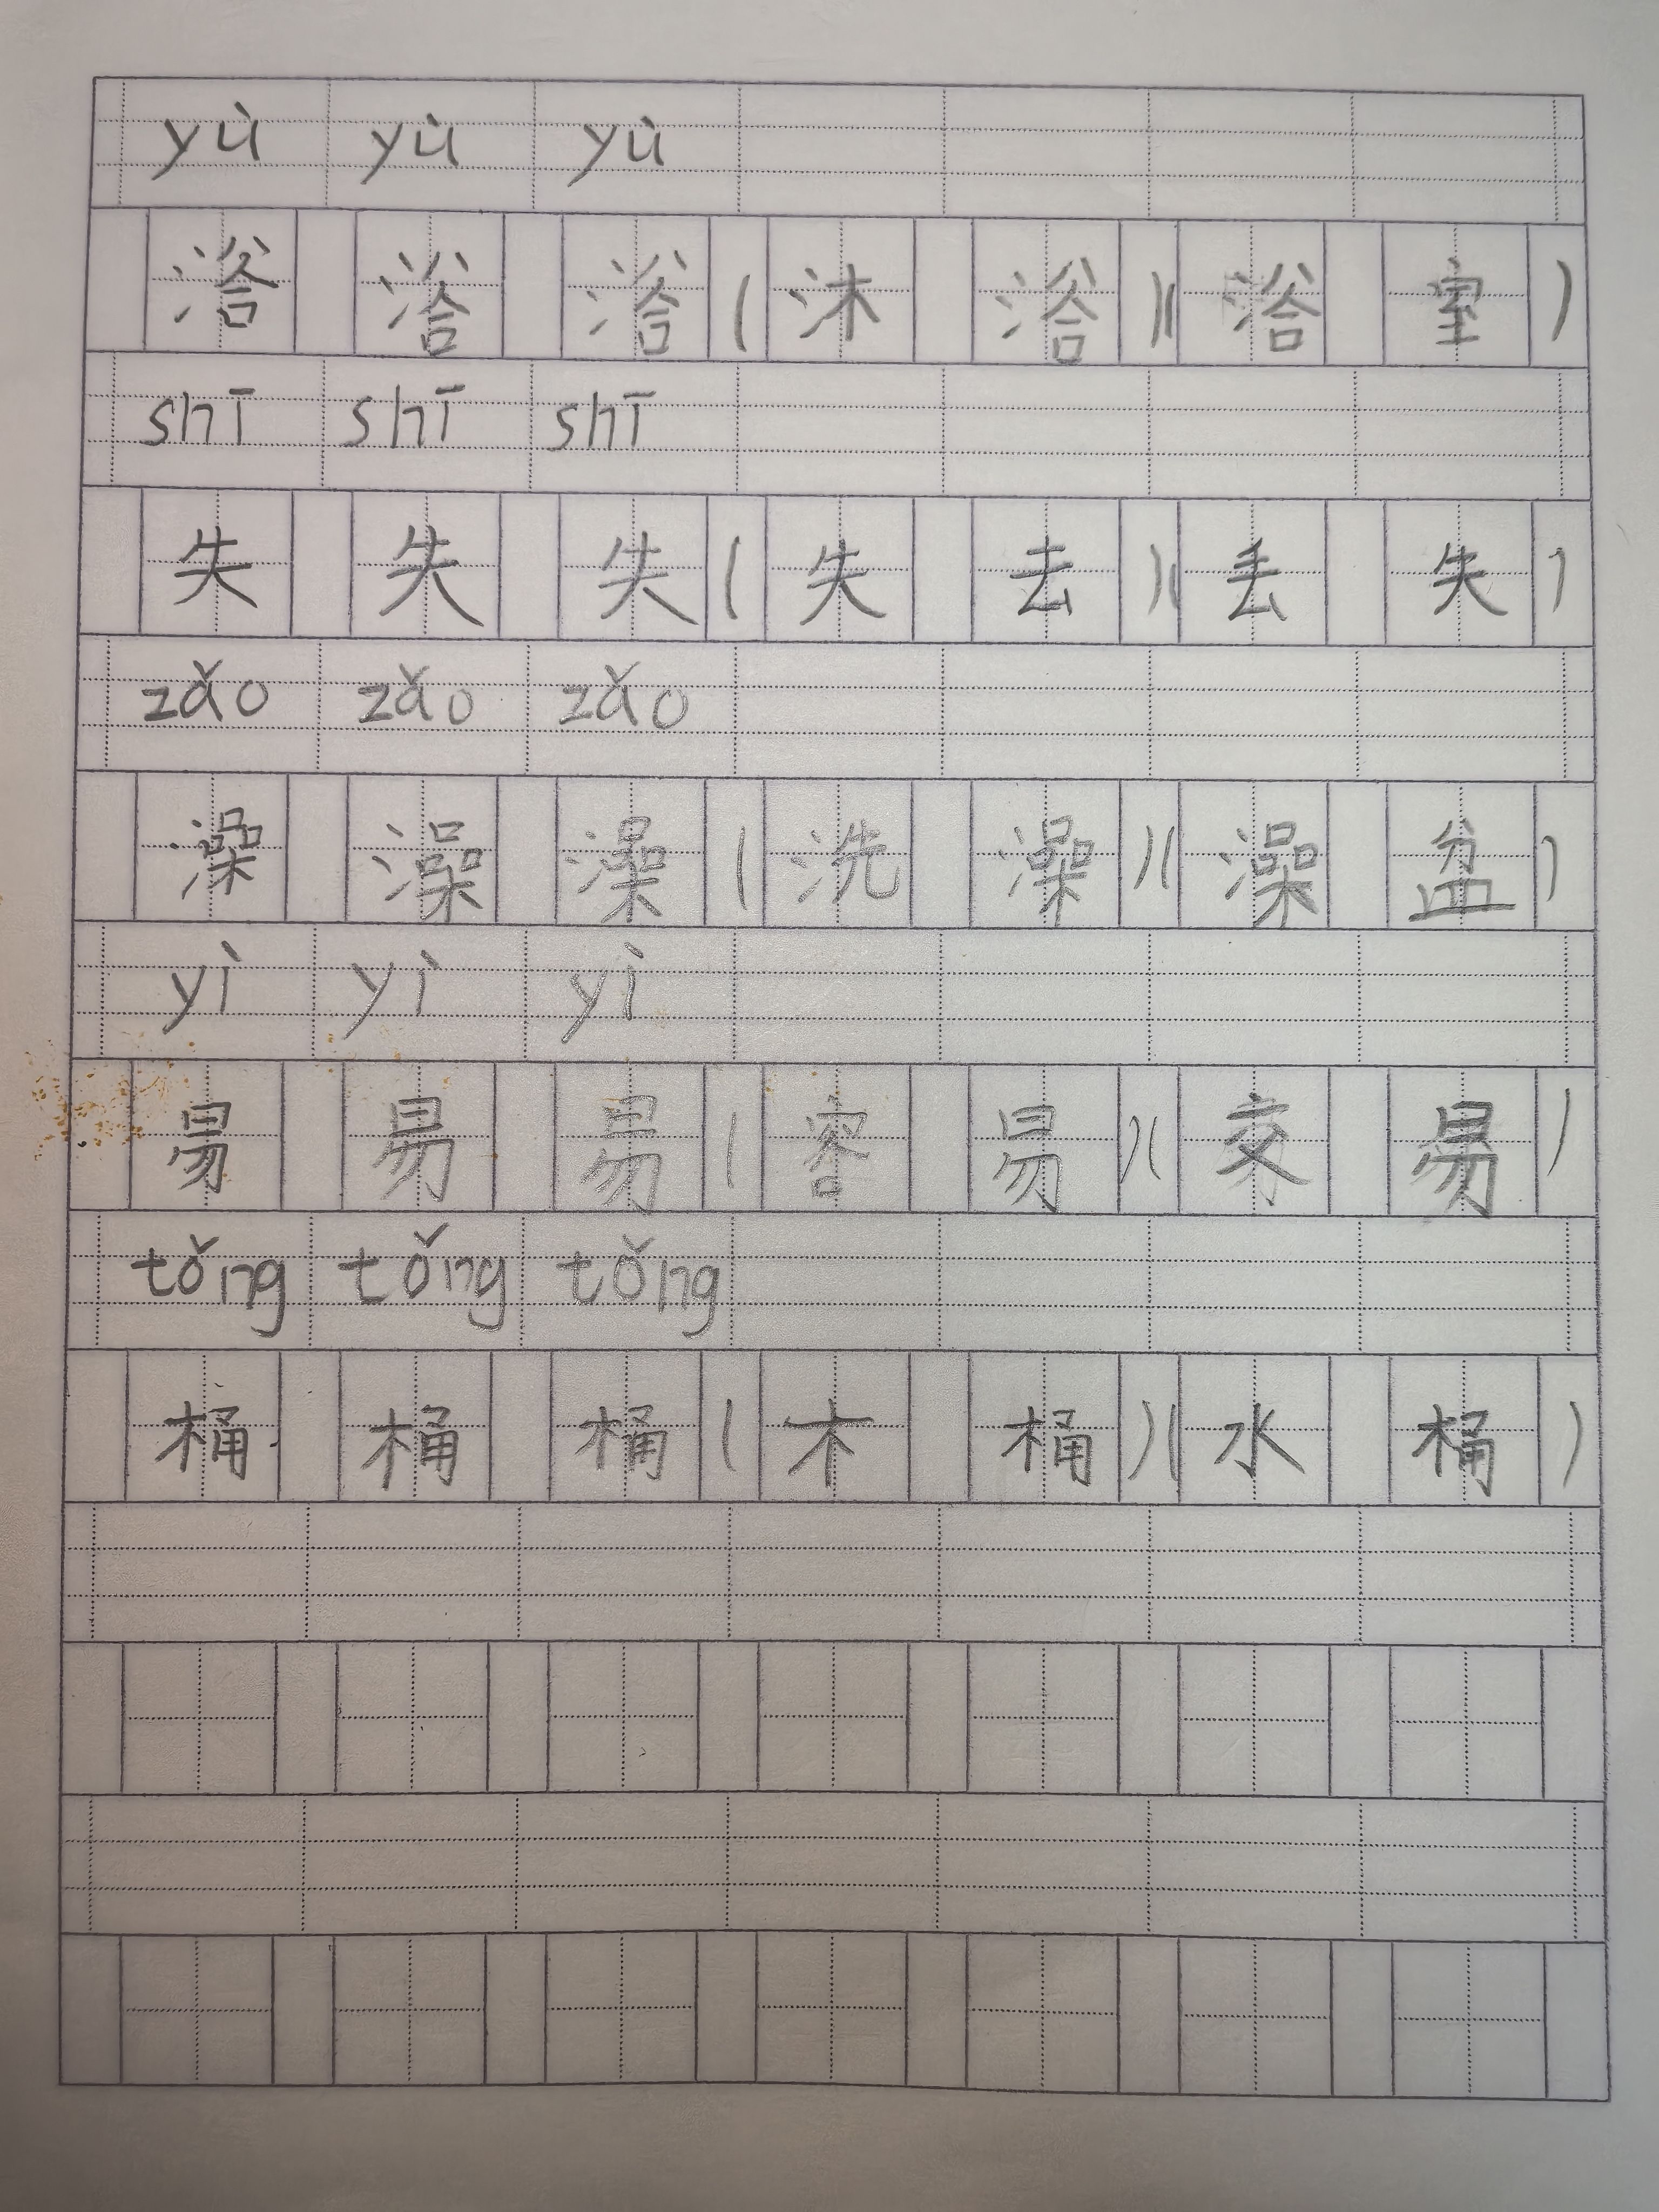 yù yù yù
浴 浴 浴 (沐 浴)(浴 室)
shī shī shī
失 失 失 (失 去)(丢 失)
zǎo zǎo zǎo
澡 澡 澡 (洗 澡)(澡 盆)
yì yì yì
易 易 易 (容 易)(交 易)
tǒng tǒng tǒng
桶 桶 桶 (木 桶)(水 桶)